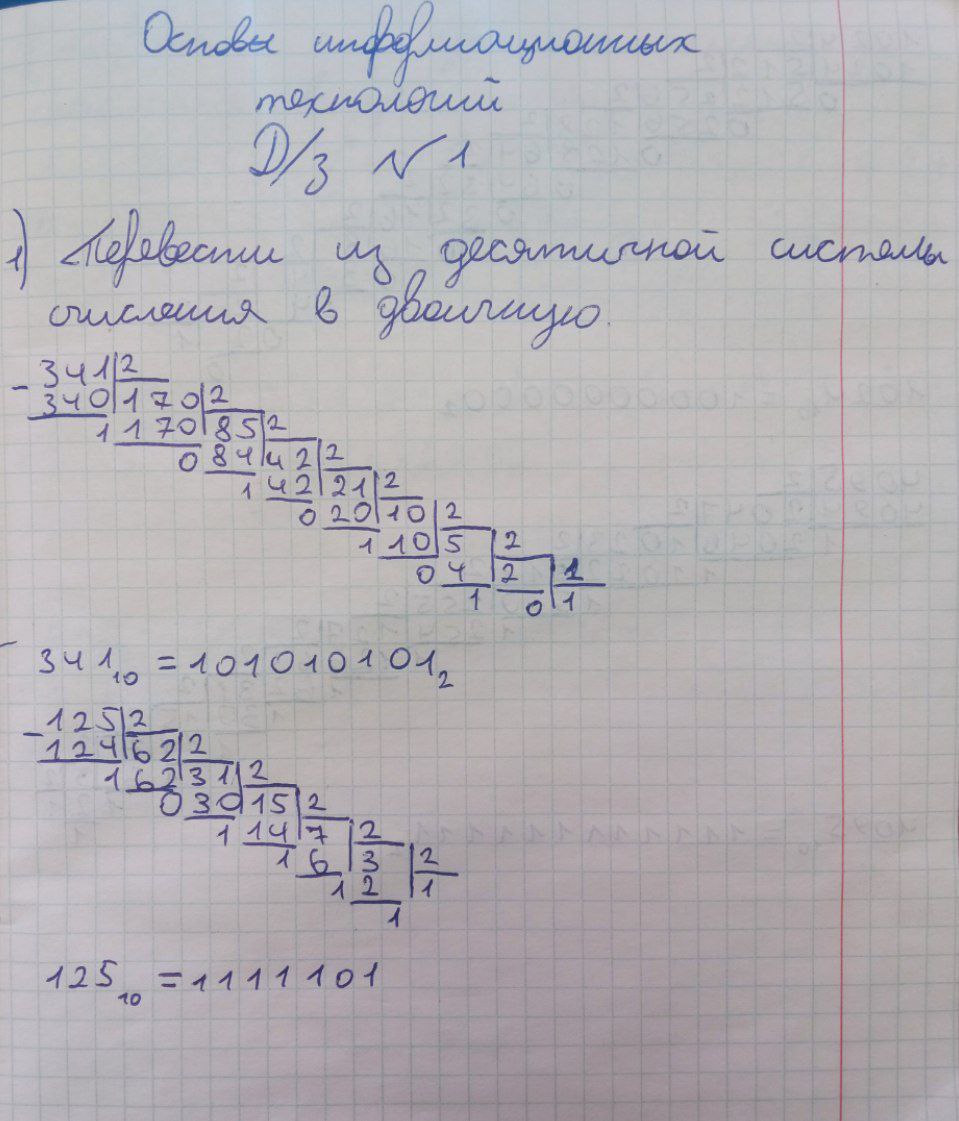 Основы информационных
технологий
Д/з №1
1) Перевести из десятичной системы
счисления в двоичную.
- 341 2
340 170 2
1 170 85 2
0 84 42 2
1 42 21 2
0 20 10 2
1 10 5 2
0 4 2 1
1 0 1
341₁₀ = 101010101₂
- 125 2
124 62 2
1 62 31 2
0 30 15 2
1 14 7 2
1 6 3 2
1 2 1
1
125₁₀ = 1111101